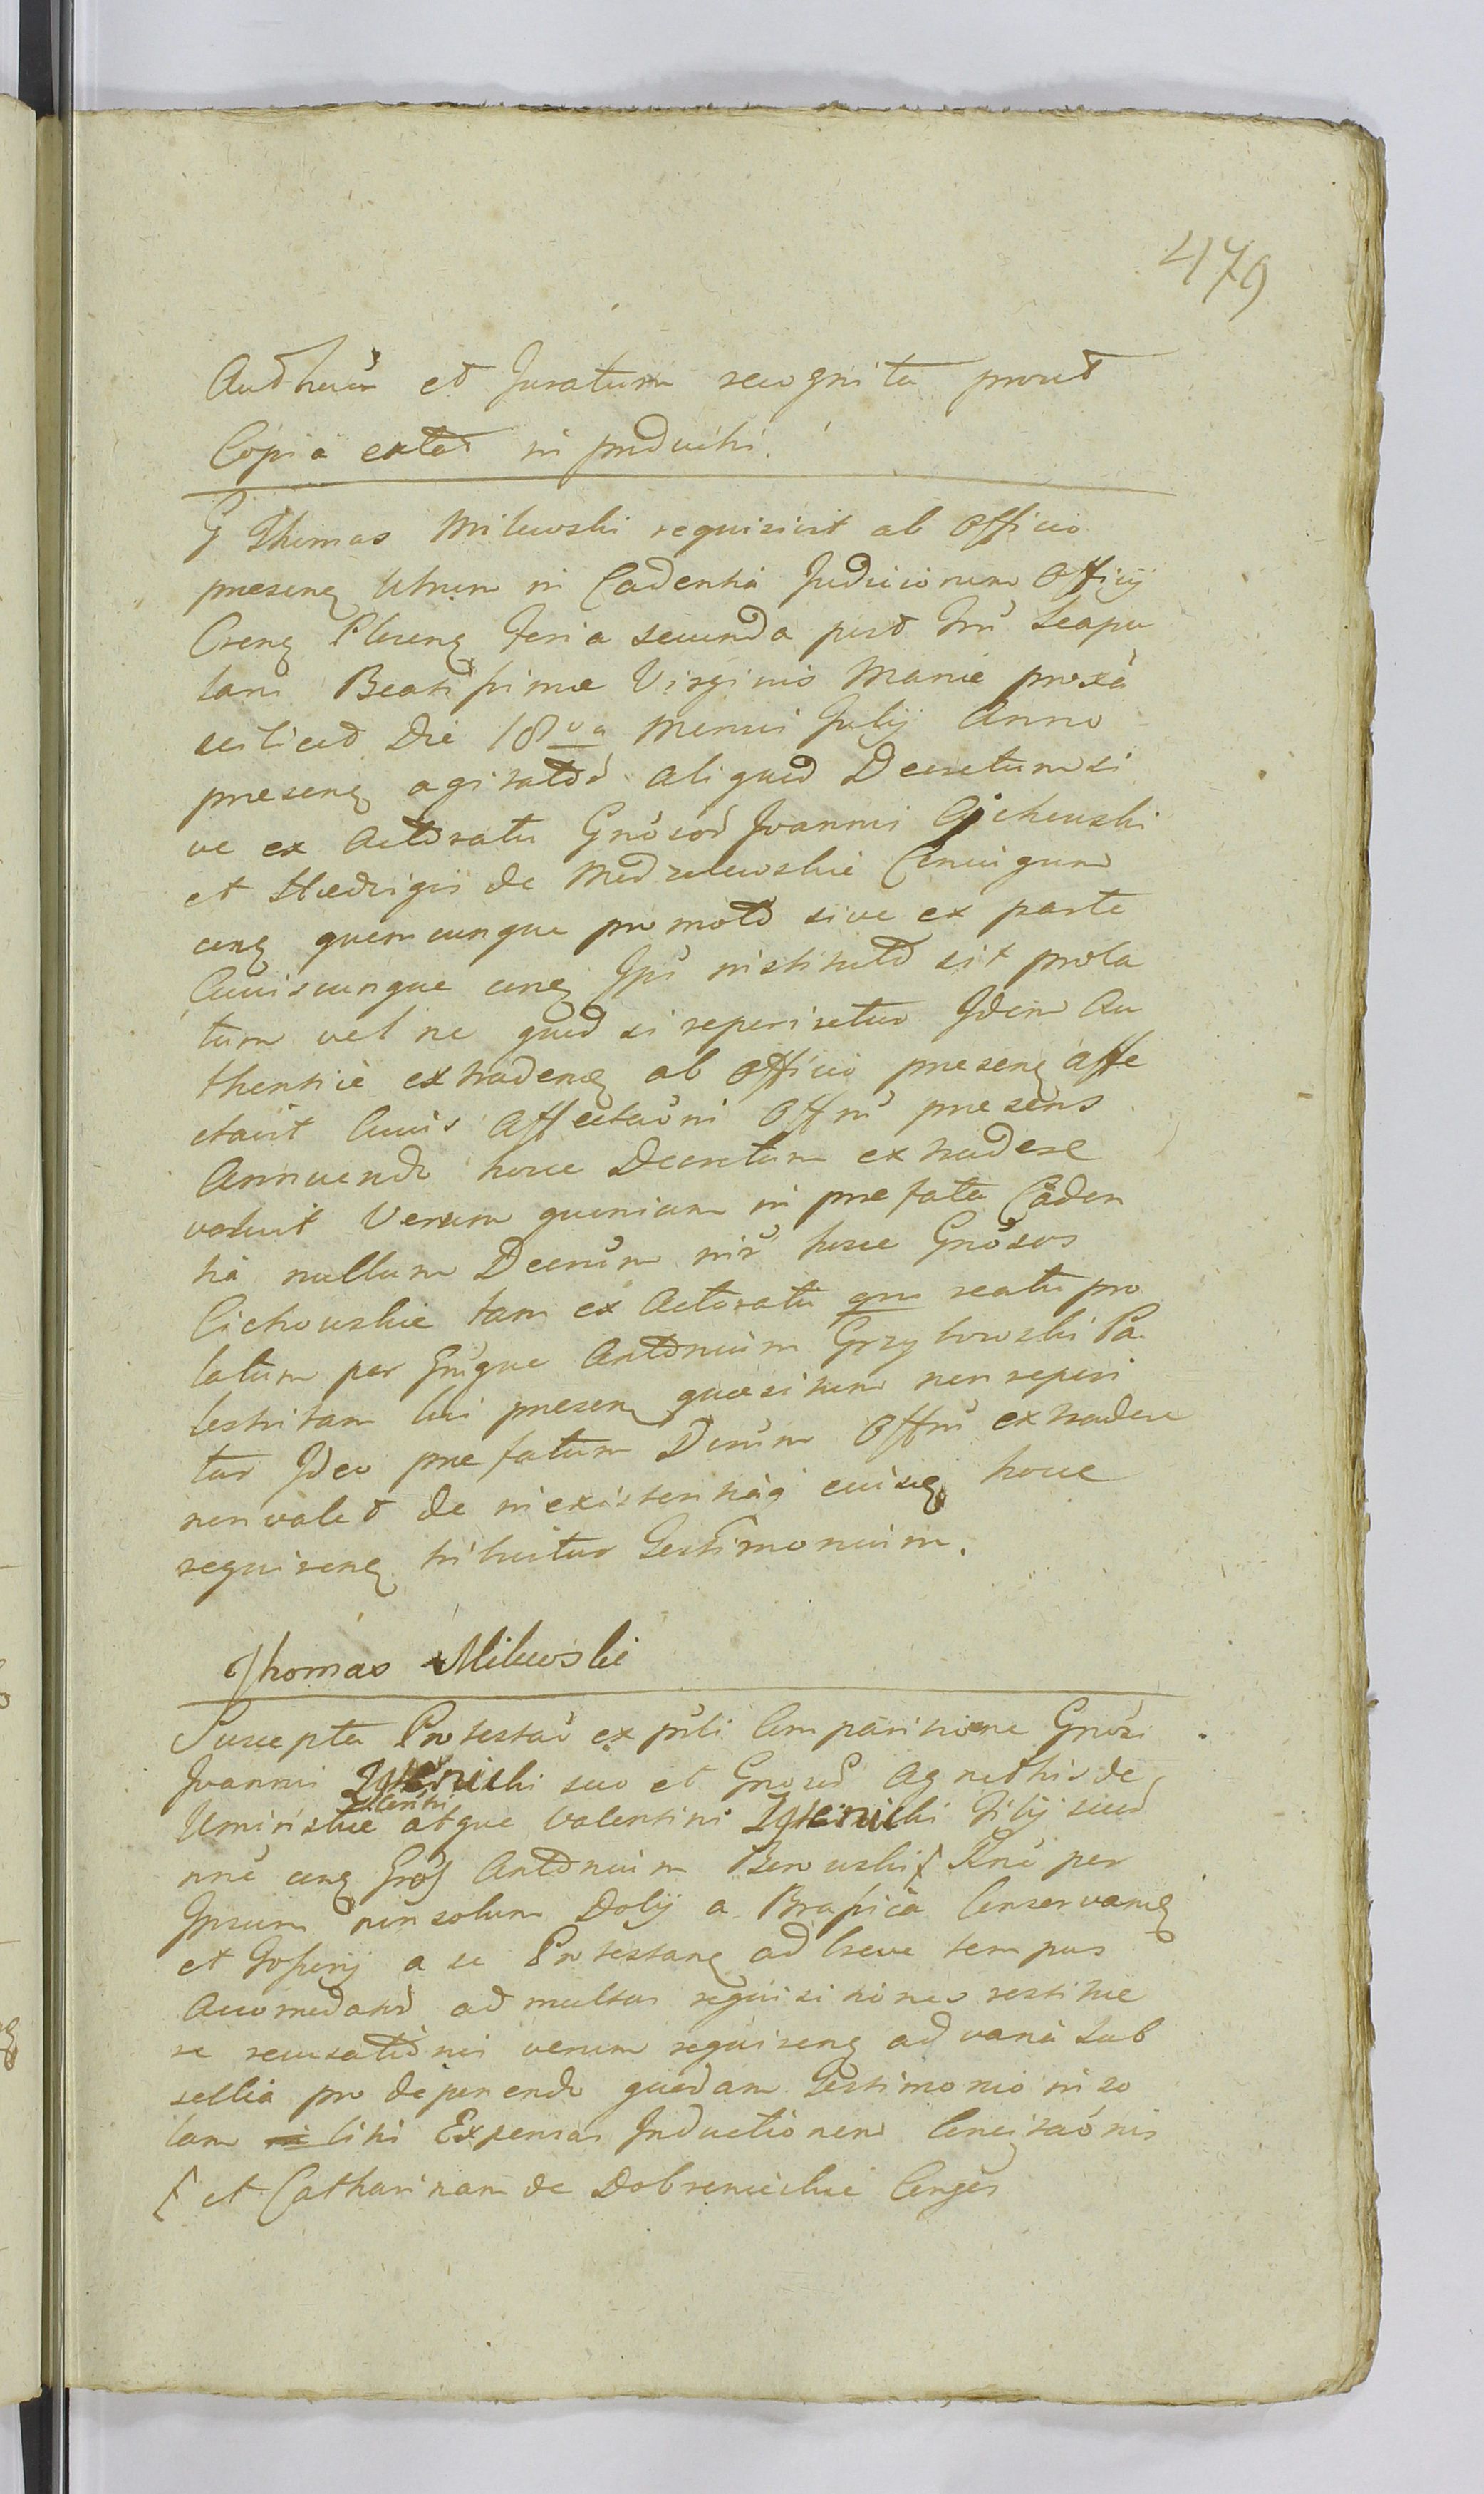 479
Authēm et Juratum recognita prout
Copia extat in producti.
G Thomas Milewski requisivit ab Officio
praeseng Utrum in Cadentia Judiciorum Officij
Creng Plneng Feria secunda post Fru Scapu
laris Beatissimae Virginis Mariae proxā
scilicet Die 18va Mensis Julij Anno
praeseng agitatōd aliquod Decretum si
ve ex Actoratu Gnōsod Joannis Cichowski
et Hedvigis de Medzelewskie Conjugum
cong quemcunque promotō sive ex parte
Cujuscunque cong Ipū institutō sit prola
tum vel ne quod si reperiretur Idem Au
thenticè extradeng ab Officio praeseng affe
ctavit Cujus Affectaōni Offm praesens
Annuendo hocce Decretum extradere
voluit Verum quoniam in praefata Caden
tia nullum Decrūm inr̄ hosce Gnōsos
Cichowskie tam ex Actoratu qm reatu pro
latum per Gn̄mque Antonium Grzybowski Pa
lestritam hic praesen quaesitum non reperi
tur Ideo praefatum Decrūm Offm extradere
non valet de inexistentiaq ejusq hocce
requireng tribuitur Testimonium.
Thomas Milewski
Suscepta Protestaō ex pnli Comparitione Gnōsi
Joannis suo et Gnosod Agnethis de
Uminskie atque Valentini Filij suod
nnē cong Gnōs Antonium Borowski ſ Rnē per
Ipsum non solum Dolij a Braxica Conservang
et a se Protestang ad breve tempus
Accomodatod ad multas requisitiones restitue
re recusatiōnis verum requireng ad varia Sub
sellia pro deponendo quodam Testimonio in so
lam liti Expensas Inductionem Concitaōnis
ſ et Catharinam de Dobronieckie Conges